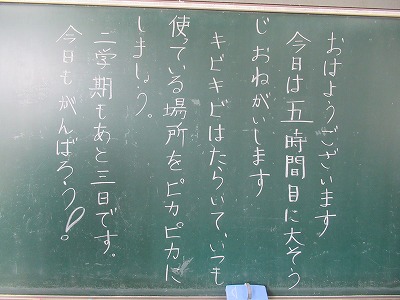 おはようございます
今日は五時間目に大そう
じおねがいします
キビキビはたらいて、いつも
使っている場所をピカピカに
しましょう。
二学期もあと三日です。
今日もがんばろう!。